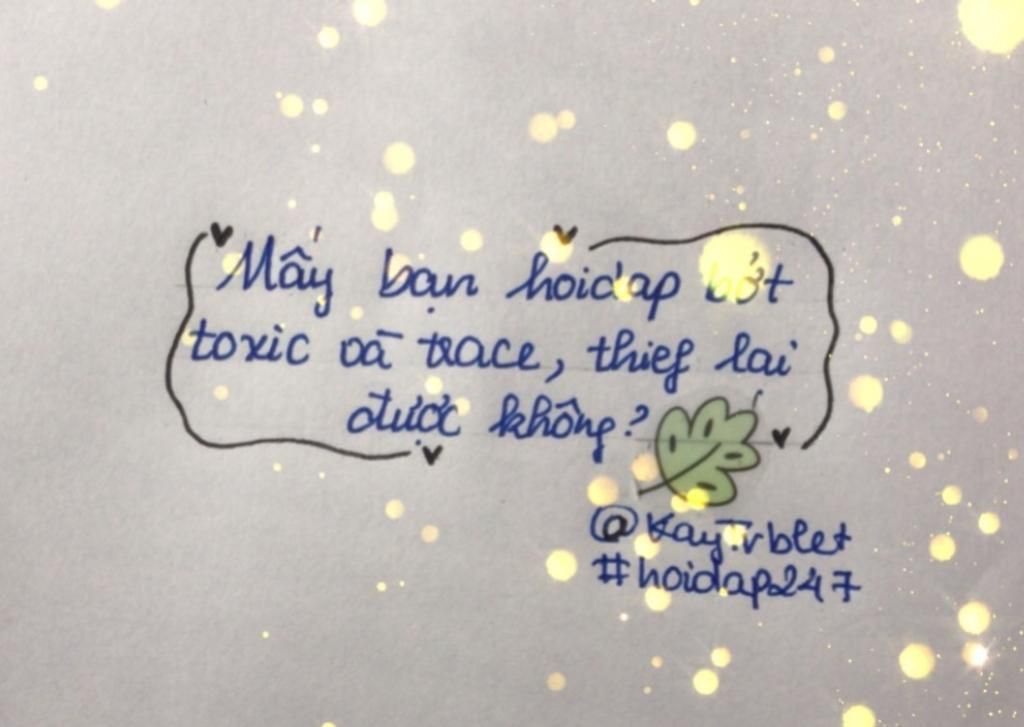 Mấy bạn hoidap bớt
toxic và trace, thief lai
được không?
@KayTrblet
#hoidap247